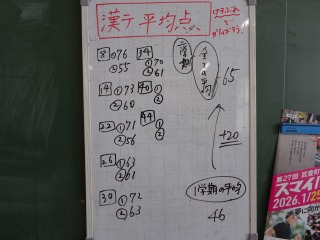 漢テ 平均点
8 ①76
②55
14 ①73
②60
22 ①71
②56
26 ①63
②61
30 ①72
②63
34
①70
②61
40 ①
②
44 ①
②
二学期
全ての平均
65
+20
1学期の平均
46
第27回
スマイル
2026.1/25